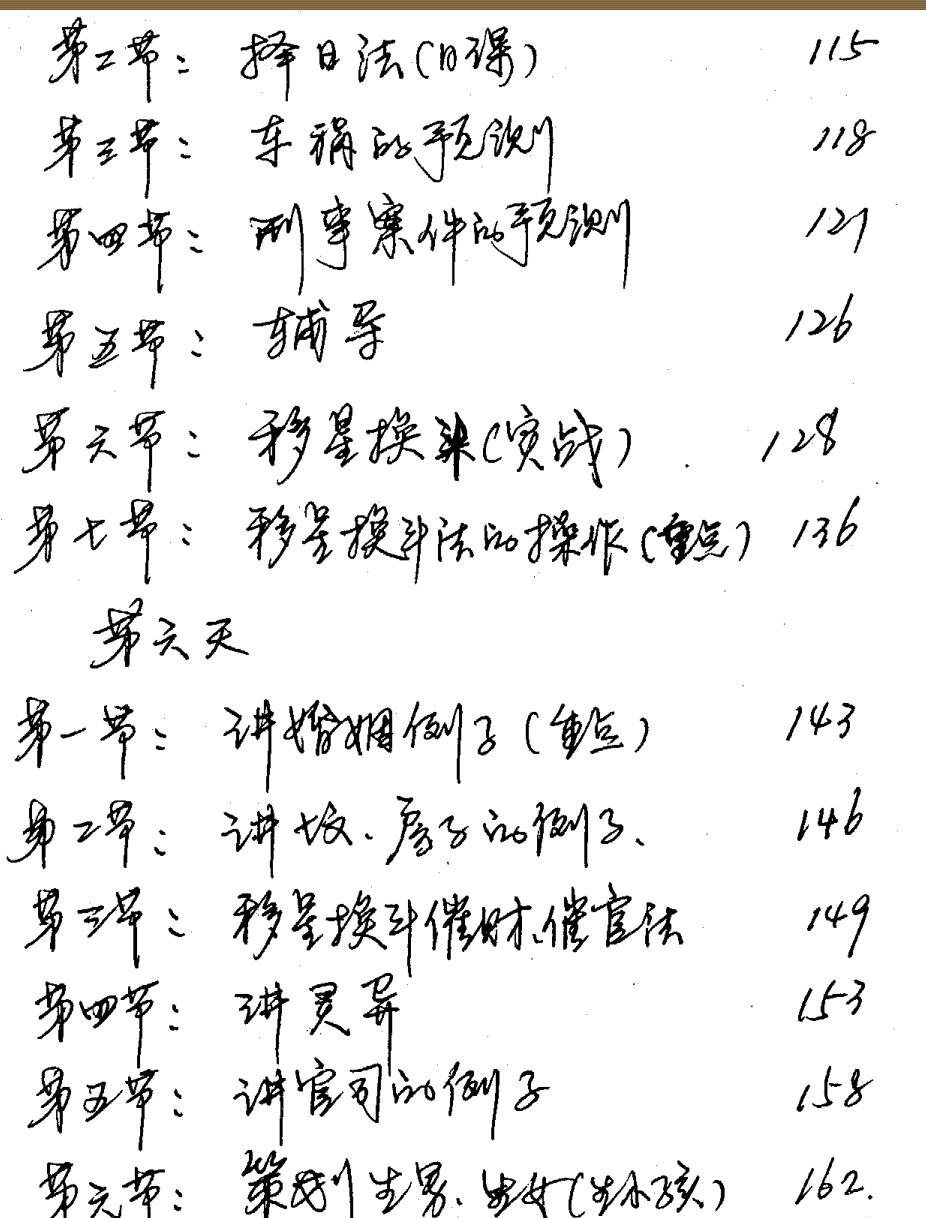 第二节: 择日法(日课) 115
第三节: 车祸的预测 118
第四节: 刑事案件的预测 121
第五节: 辅导 126
第六节: 移星换斗(实战) 128
第七节: 移星换斗法的操作(重点) 136
第六天
第一节: 讲婚姻例子(重点) 143
第二节: 讲坟、房子的例子、 146
第三节: 移星换斗催财、催官法 149
第四节: 讲灵异 153
第五节: 讲官司的例子 158
第六节: 策划生男、生女(生小孩) 162.